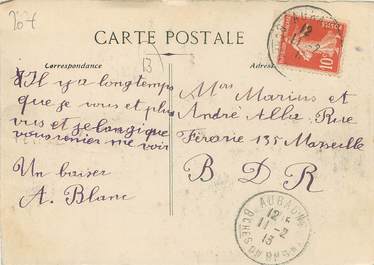 2074
CARTE POSTALE
Correspondance
13
Il y a longtemps
que je vous et plus
vus et je langique
vous venier me voir
Un baiser
A. Blanc
Mrs Marius et
André Alla Rue
Ferarie 135 Marseille
B D R
10
AUBAGNE
12
11-2
13
BCHES DU RHONE